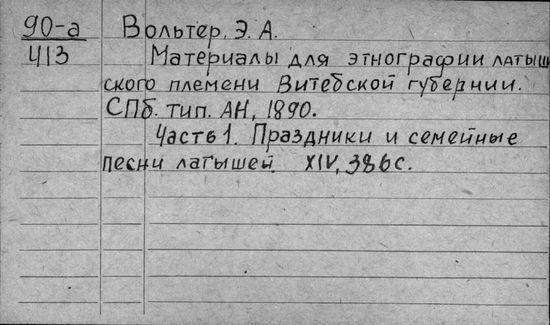 90-а Вольтер, Э. А.
413 Материалы для этнографии латыш
ского племени Витебской губернии.
СПб. тип. АН, 1890.
Часть 1. Праздники и семейные
песни латышей. XIV, 386 с.